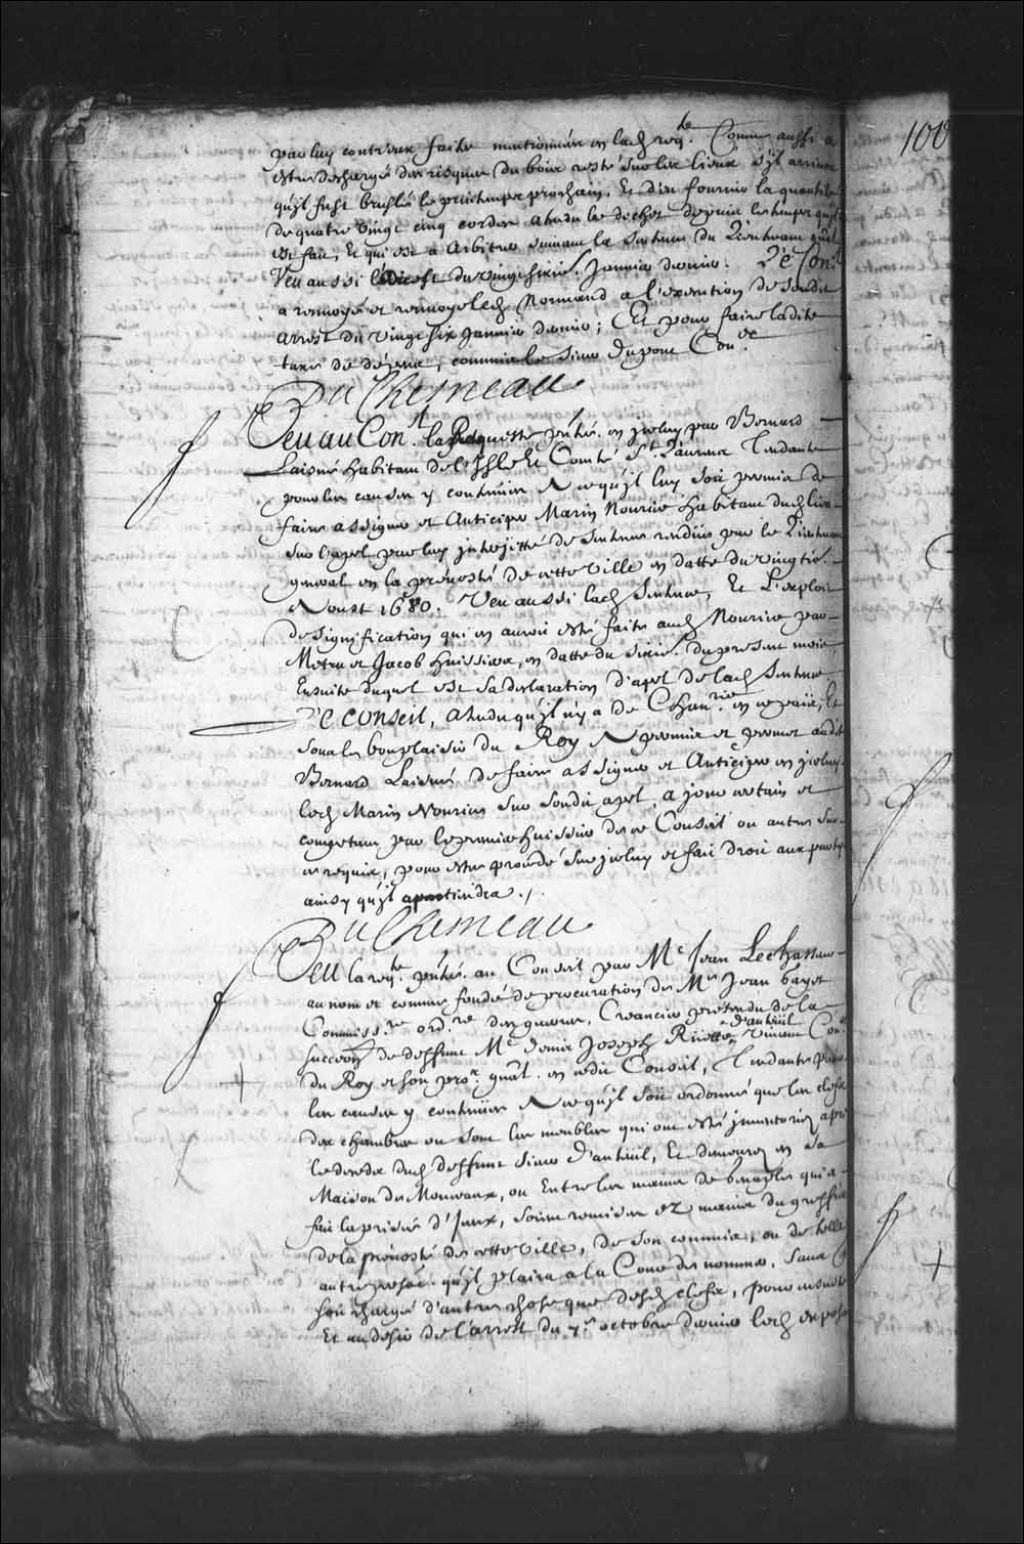 par luy contreux faite mentionnée en lad req.te Comme aussi a
estre deschargé des risques du bois resté sur les lieux s'il arrivoit
qu'il fust bruslé le printemps prochain. Et d'en fournir la quantité
de quatre vingt cinq cordes attendu le dechet depuis le temps qu'il
est fait, Et qui est a Arbitrer suivant la sentence du Lieutenant gnal
Veu aussi l'Arrest du vingt sixie. Janvier dernier. Le Con.l
a renvoyé et renvoye led Normand a l'execution de sondit
arrest du vingt six Janvier dernier; Et pour faire ladite
taxe de dépens, commis le sieur Dupont Con.er
DuChesneau
Veu au Con.l la Requeste pntée. en iceluy par Bernard
Laisné habitant de l'Isle et Comté St Laurens Tendante
pour les causes y contenues A ce qu'il luy soit permis de
faire assigner et Anticiper Marin Nourice habitant dud lieu
sur l'apel par luy interjetté de sentence rendue par le Lieutenant
general en la prevosté de cette ville en datte du vingtie.
Aoust 1680. Veu aussi lad Sentence, Et L'exploit
de signification qui en auroit esté faite aud Nourice par
Metru et Jacob huissiers, en datte du sixie. du present mois
Ensuite duquel est sa declaration d'apel de lad Sentence
Le Conseil, attendu qu'il n'y a de Chan.rie en ce païs, Et
sous le bon plaisir du Roy A permis et permet audit
Bernard Laisné de faire assigner et Anticiper en iceluy
led Marin Nourice sur sondit apel, a jour certain et
competent par le premier huissier de ce Conseil ou autre sur
ce requis, pour estre procedé sur iceluy et fait droit aux parties
ainsy qu'il apartiendra ./.
DuChesneau
Veu la req.te pntée. au Conseil par Me Jean Lechasseur
au nom et comme fondé de procuration de Me Jean bayet
Commiss.re ord.re des guerres, Creancier pretendu de la
succeon de deffunt Me Denis Joseph Ruette d'auteuil vivant Con.er
du Roy et son pro.r gnal. en cedit Conseil, Tendante pour
les causes y contenues A ce qu'il soit ordonné que les clefs
des chambres ou sont les meubles qui ont esté inventoriez apres
le deceds dud deffunt sieur d'auteuil, Et demeurez en sa
Maison de Monceaux, ou Entre les mains de qui a
fait la prisée d'Iceux, soient remises ez mains du greffier
de la prevosté de cette ville, de son commis, ou de telle
autre person. qu'il plaira a la Cour de nommer, sans
soit chargé d'autre chose que desd clefs, pour ensuite
Et au desir de l'arrest du 7.e octobre dernier led exposant
100